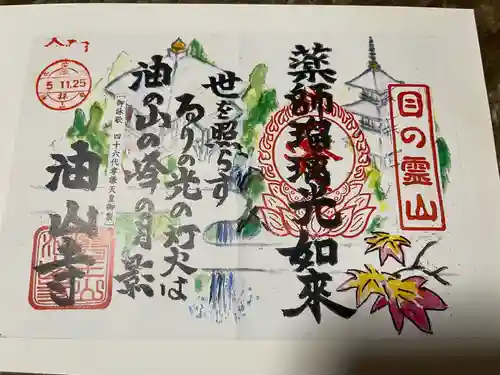 目の霊山
薬師瑠璃光如來
世を照らす
るりの光の灯火は
油山の峰の月影
「御詠歌 四十六代孝謙天皇御製」
油山寺
5 11.25